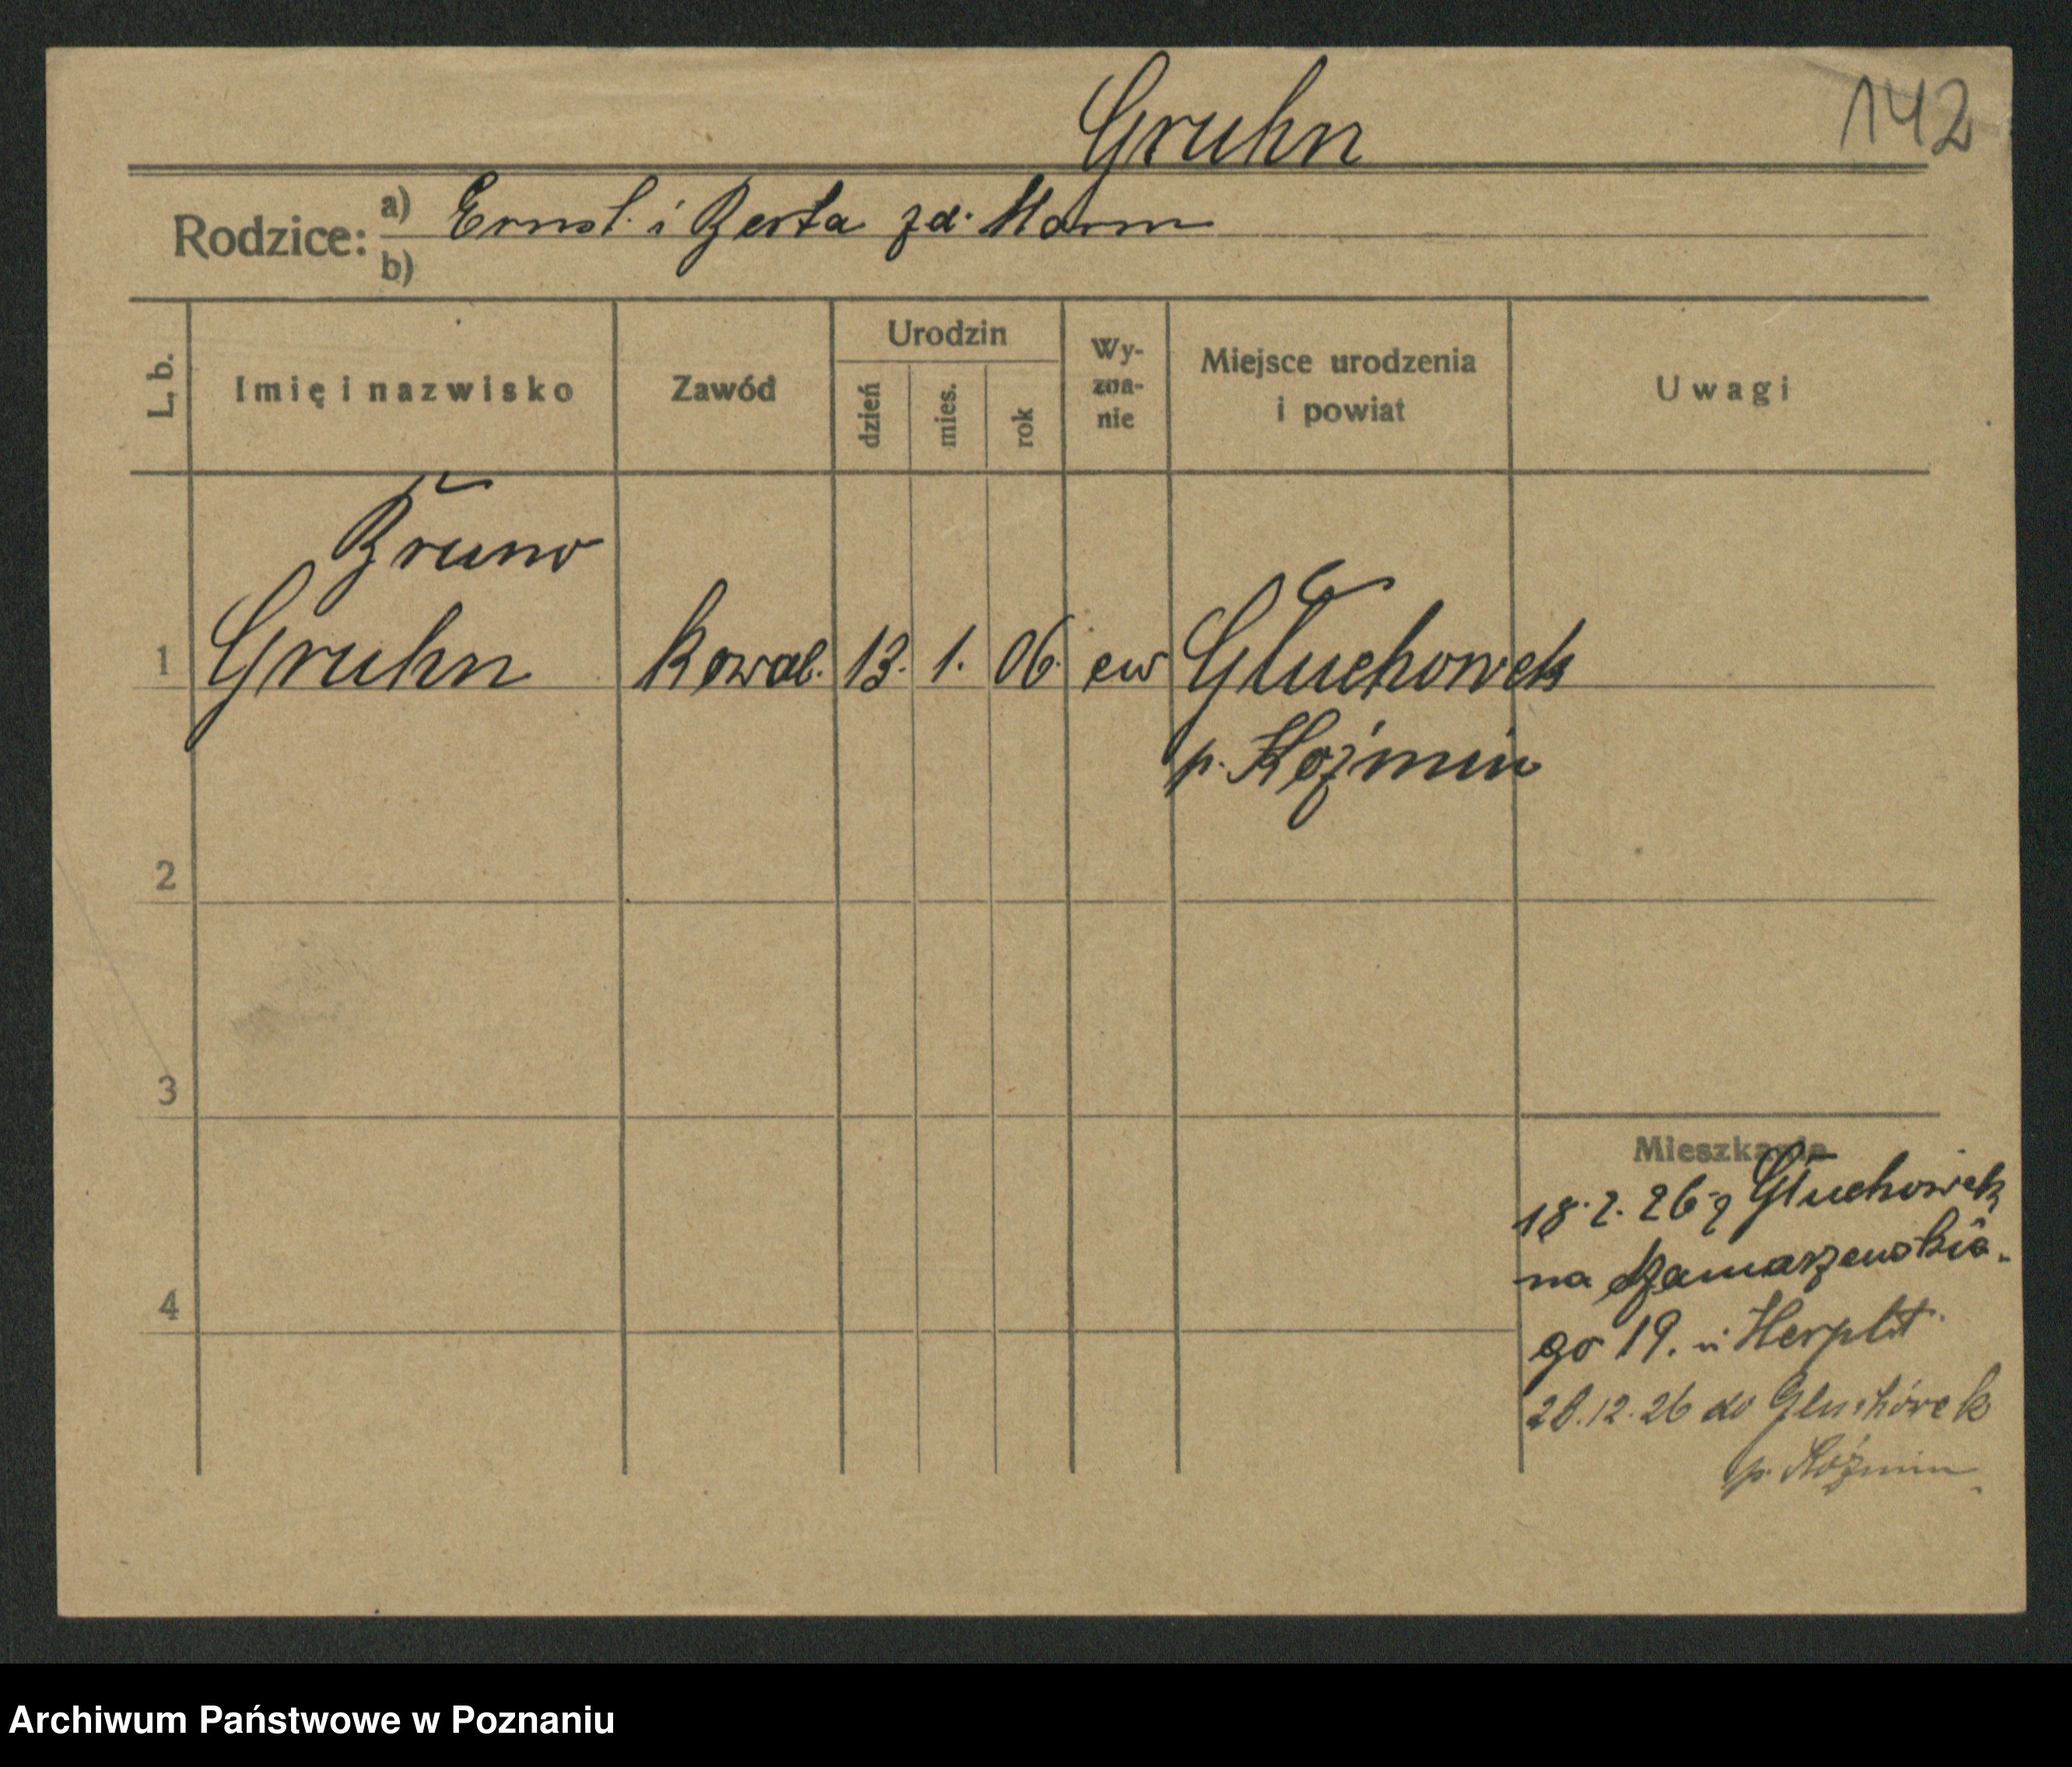 Gruhn
142
Rodzice: a) Ernst i Berta zd. Harm
b)
L. b.
Imię i nazwisko
Zawód
Urodzin
dzień
mies.
rok
Wy-
zna-
nie
Miejsce urodzenia
i powiat
Uwagi
Bruno
1 Gruhn Kowal. 13. 1. 06. ew Głuchowek
p. Koźmin
2
3
4
Mieszkania
18.2.26 z Głuchowek
na
go 19. u
28.12.26 do Gluchówek
p. Koźmin
Archiwum Państwowe w Poznaniu